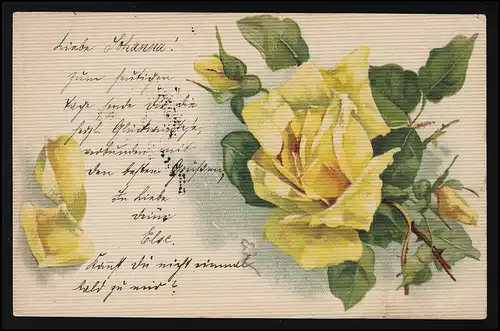 Liebe Johanna!
zum heutigen
Tage sende Dir die
herzl. Glückwünsche,
verbunden mit
den besten Grüßen,
In Liebe
deine
Else.
Kannst Du nicht einmal
bald zu mir?